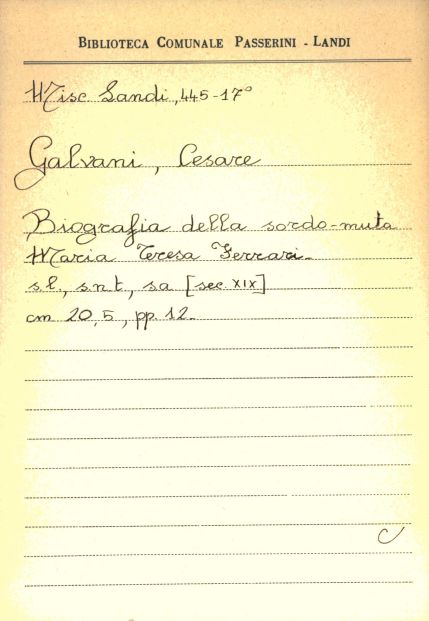 BIBLIOTECA COMUNALE PASSERINI - LANDI
Misc. Landi, 445-17°
Galvani, Cesare
Biografia della sordo-muta
Maria Teresa Ferrari.
s.l., s.n.t, s.a [sec. XIX]
cm 20,5, pp. 12.
C